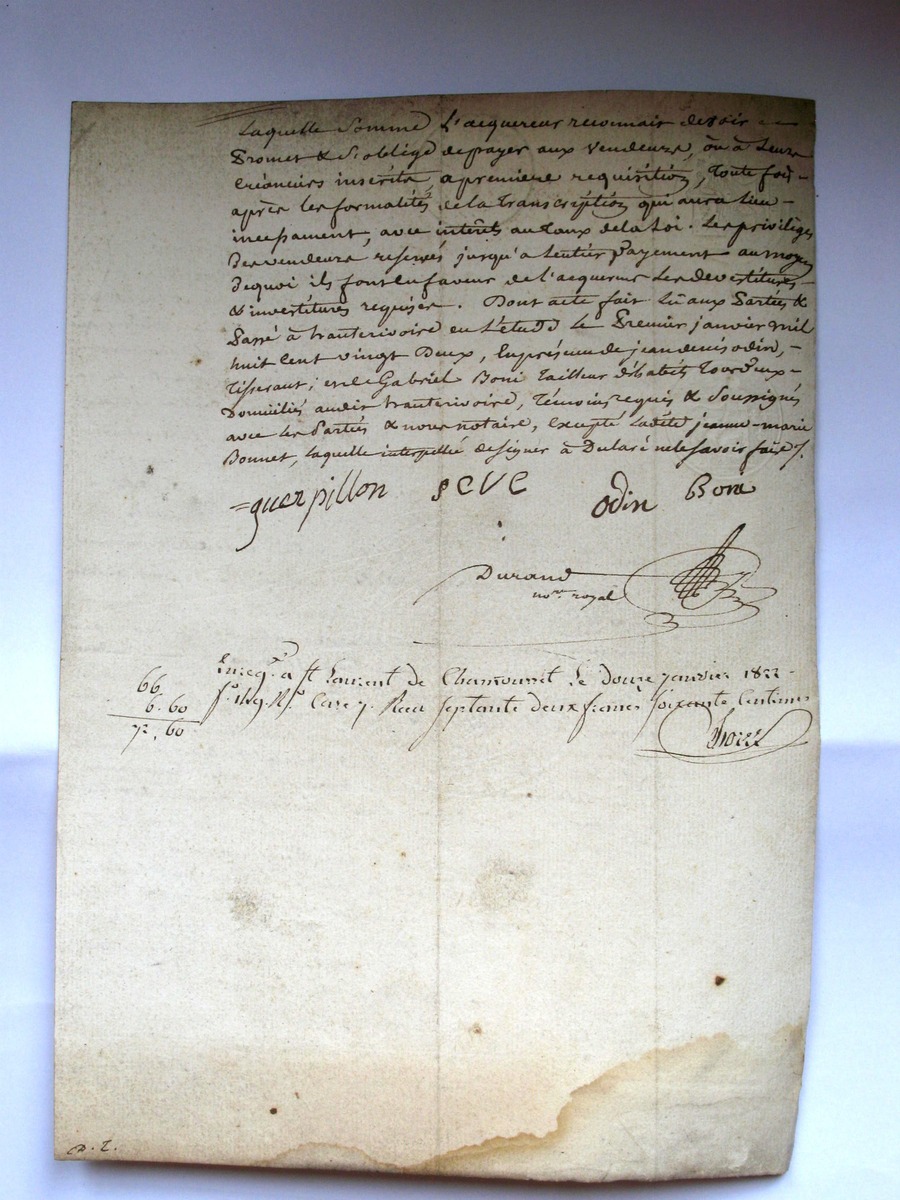 Laquelle somme l'acquereur reconnait devoir
Promet & s'oblige de payer aux vendeurs, où à Leurs
Créanciers inscrits, a première requisition, toute fois
après les formalités de la transcription qui aura Lieu
incessament, avec intérêts au taux de la Loi. Les privilèges
Des vendeurs reservés jusqu'a Lentier Payement au moyen
De quoi ils font en faveur de l'acquereur Les devestitures
& investitures requises. Dont acte fait Lû aux Parties &
Passé à hauterivoire en L'etude Le Premier janvier mil
huit cent vingt Deux, En présence de jean denis odin,
Tisserant; et de Gabriel Boni Tailleur d'habits Tous Deux
Domiciliés audit hauterivoire, témoins requis & Soussignés
avec Les Parties & nous notaire, excepté Ladite jeanne-marie
Bonnet, Laquelle interpellée de signer à Déclaré ne le Savoir faire /.
=guerpillon SEVE odin Boni
Durand
no.re royal
Enreg.é a St Laurent de Chamousset Le douze janvier 1822
66
f.o 119. R.o Case 7. Reçu Septante deux francs Soixante Centimes
6. 60
72. 60
D. T.